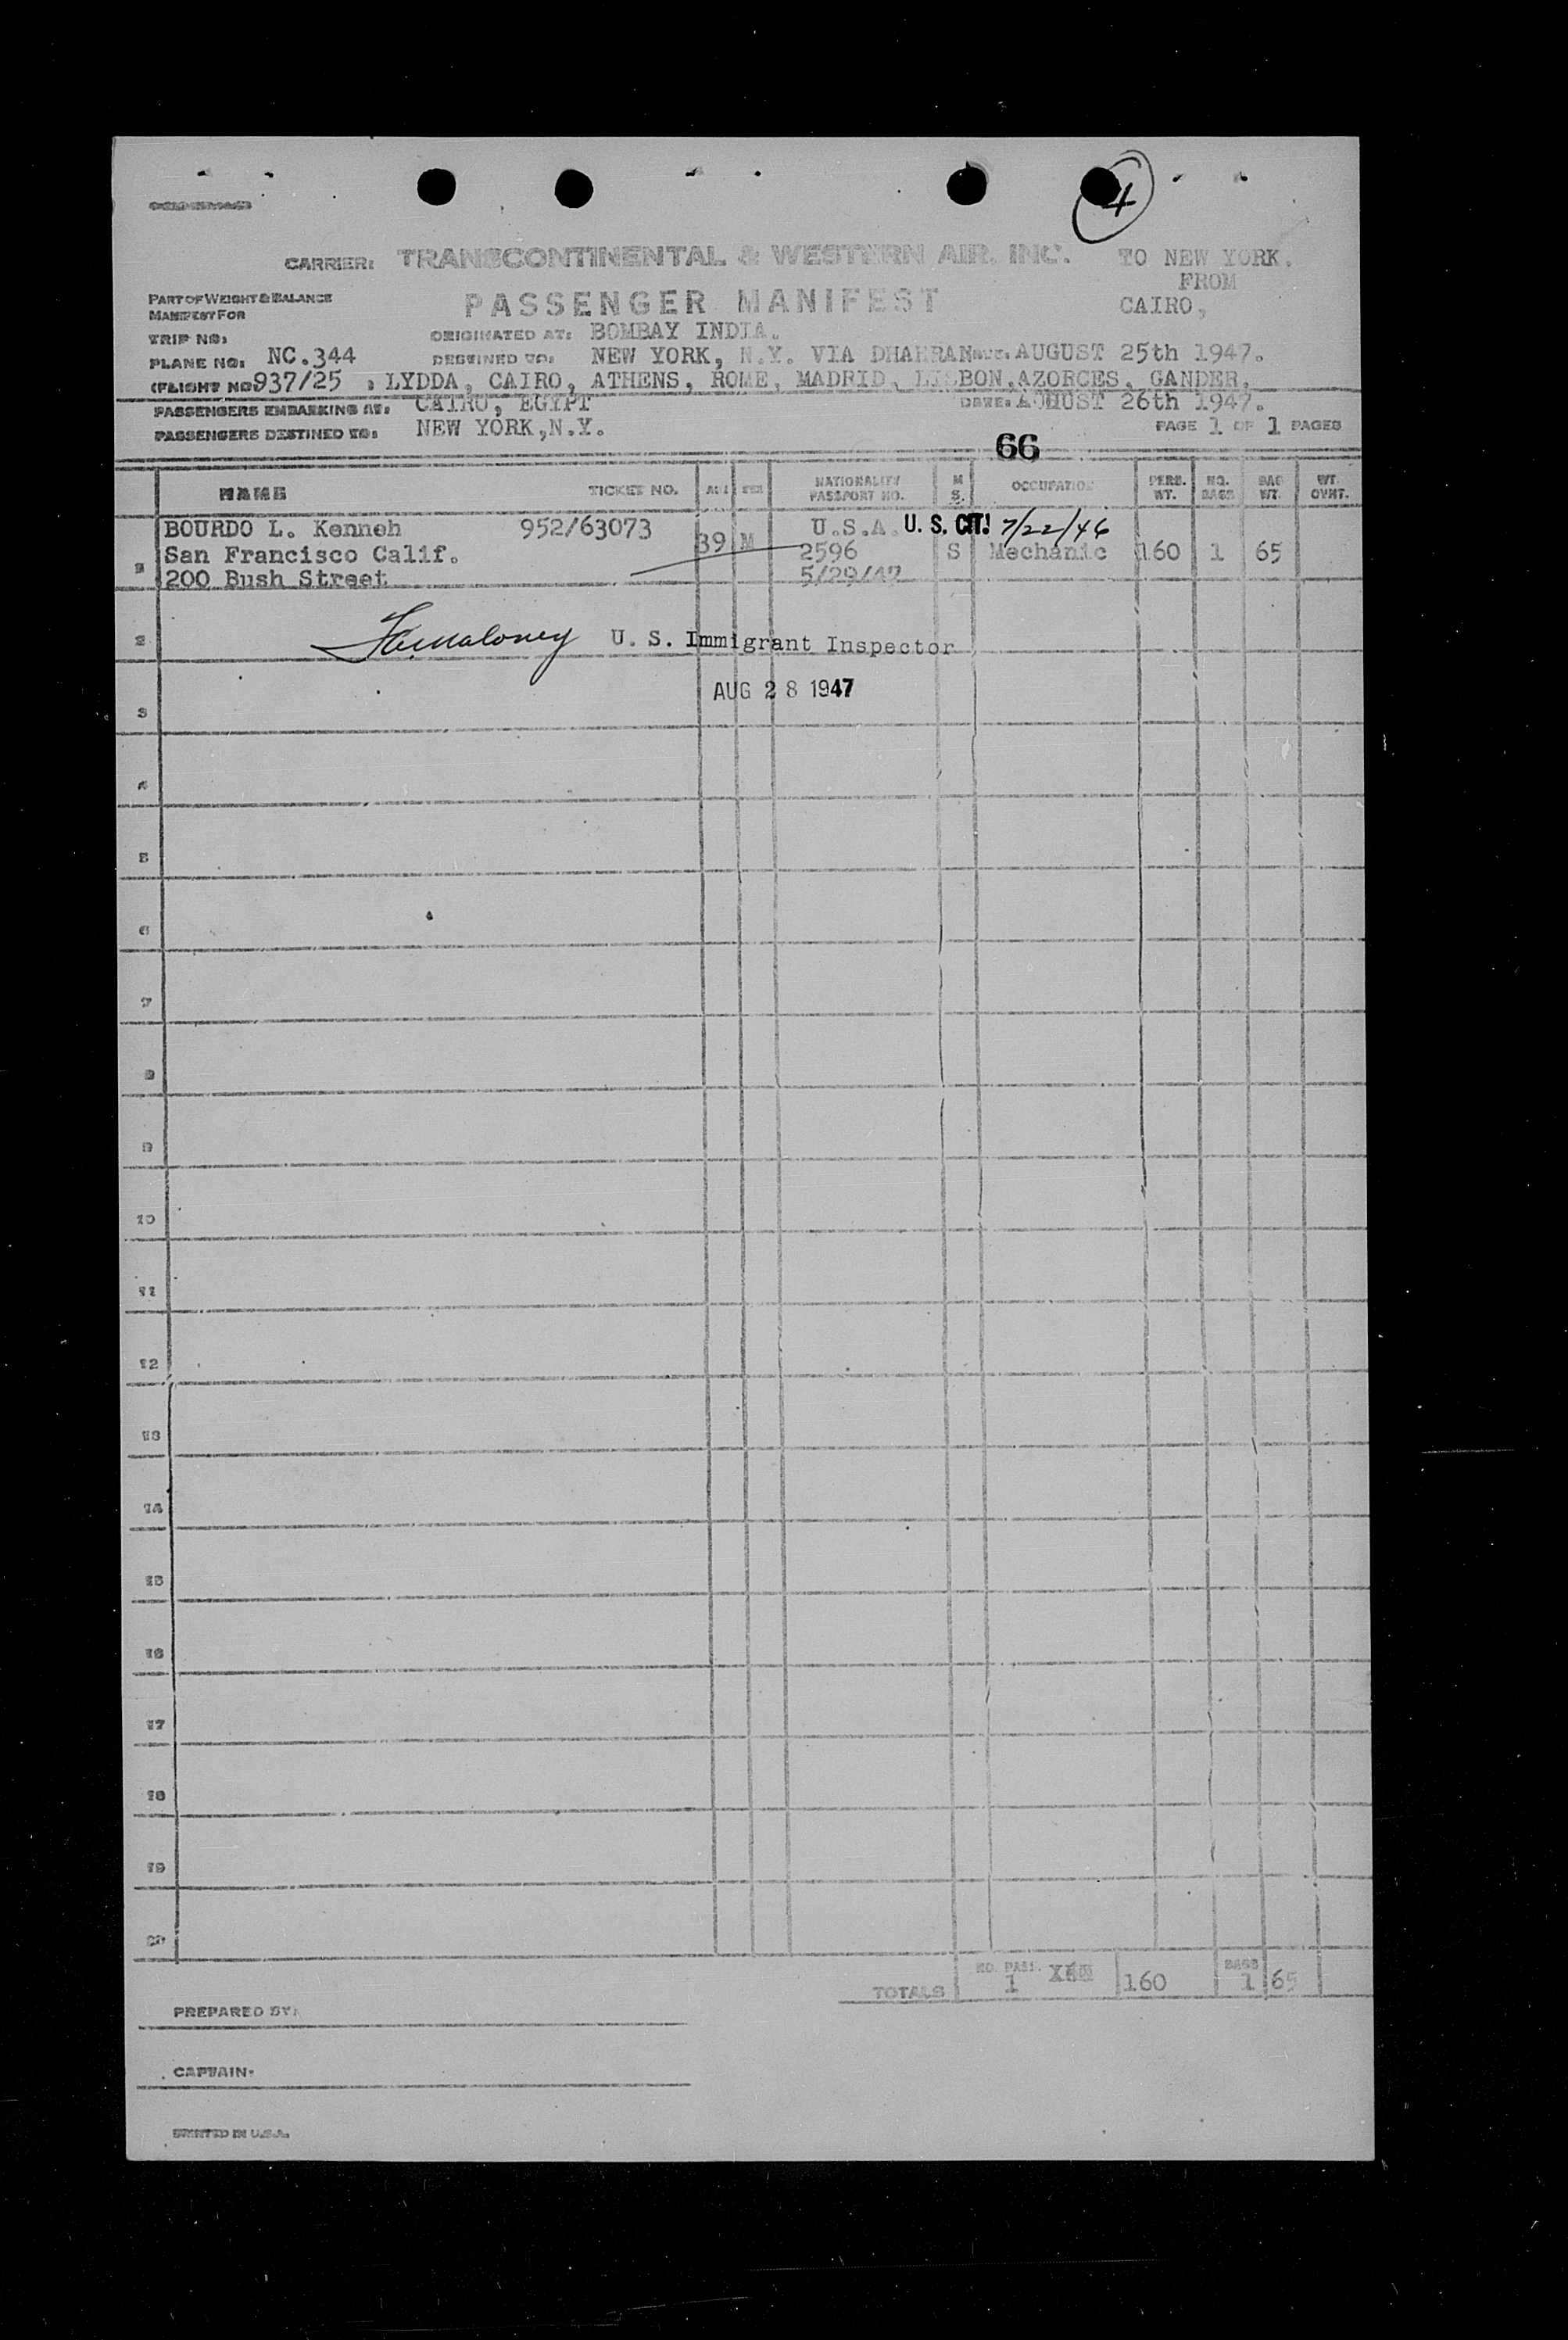 4
CARRIER: TRANSCONTINENTAL & WESTERN AIR, INC. TO NEW YORK.
FROM
PART OF WEIGHT & BALANCE PASSENGER MANIFEST CAIRO,
MANIFEST FOR
TRIP NO: ORIGINATED AT: BOMBAY INDIA.
PLANE NO: NC.344 DESTINED TO: NEW YORK, N.Y. VIA DHAHRAN AUGUST 25th 1947.
(FLIGHT NO 937/25 , LYDDA, CAIRO, ATHENS, ROME, MADRID, LISBON, AZORCES, GANDER,
PASSENGERS EMBARKING AT: CAIRO, EGYPT DATE: AUHUST 26th 1947.
PASSENGERS DESTINED TO: NEW YORK,N.Y. PAGE 1 OF 1 PAGES
66
NAME TICKET NO. AGE SEX NATIONALITY PASSPORT NO. M S. OCCUPATION PERS. WT. NO. BAGS BAG WT. WT. OVHT.
BOURDO L. Kenneh 952/63073 U.S.A. U. S. CIT! 7/22/46
San Francisco Calif. 39 M 2596 S Mechanic 160 1 65
200 Bush Street 5/29/47
2 U. S. Immigrant Inspector
AUG 28 1947
3
4
5
6
7
8
9
10
11
12
13
14
15
16
17
18
19
20
TOTALS NO. PASS. 1 160 BAGS 1 65
PREPARED BY:
CAPTAIN:
PRINTED IN U.S.A.